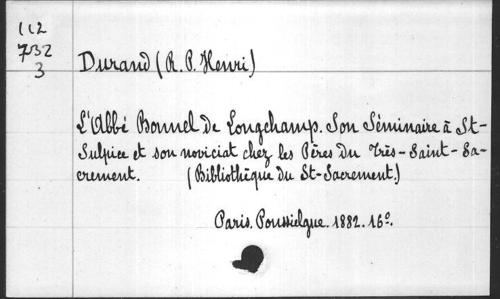 112
732
3
Durand (R. P. Henri)
L'Abbé Bonnel de Longchamp. Son Séminaire à St-
Sulpice et son noviciat chez les Pères du Très-Saint-Sa-
crement. (Bibliothèque du St-Sacrement.)
Paris. Poussielgue. 1882. 16º.